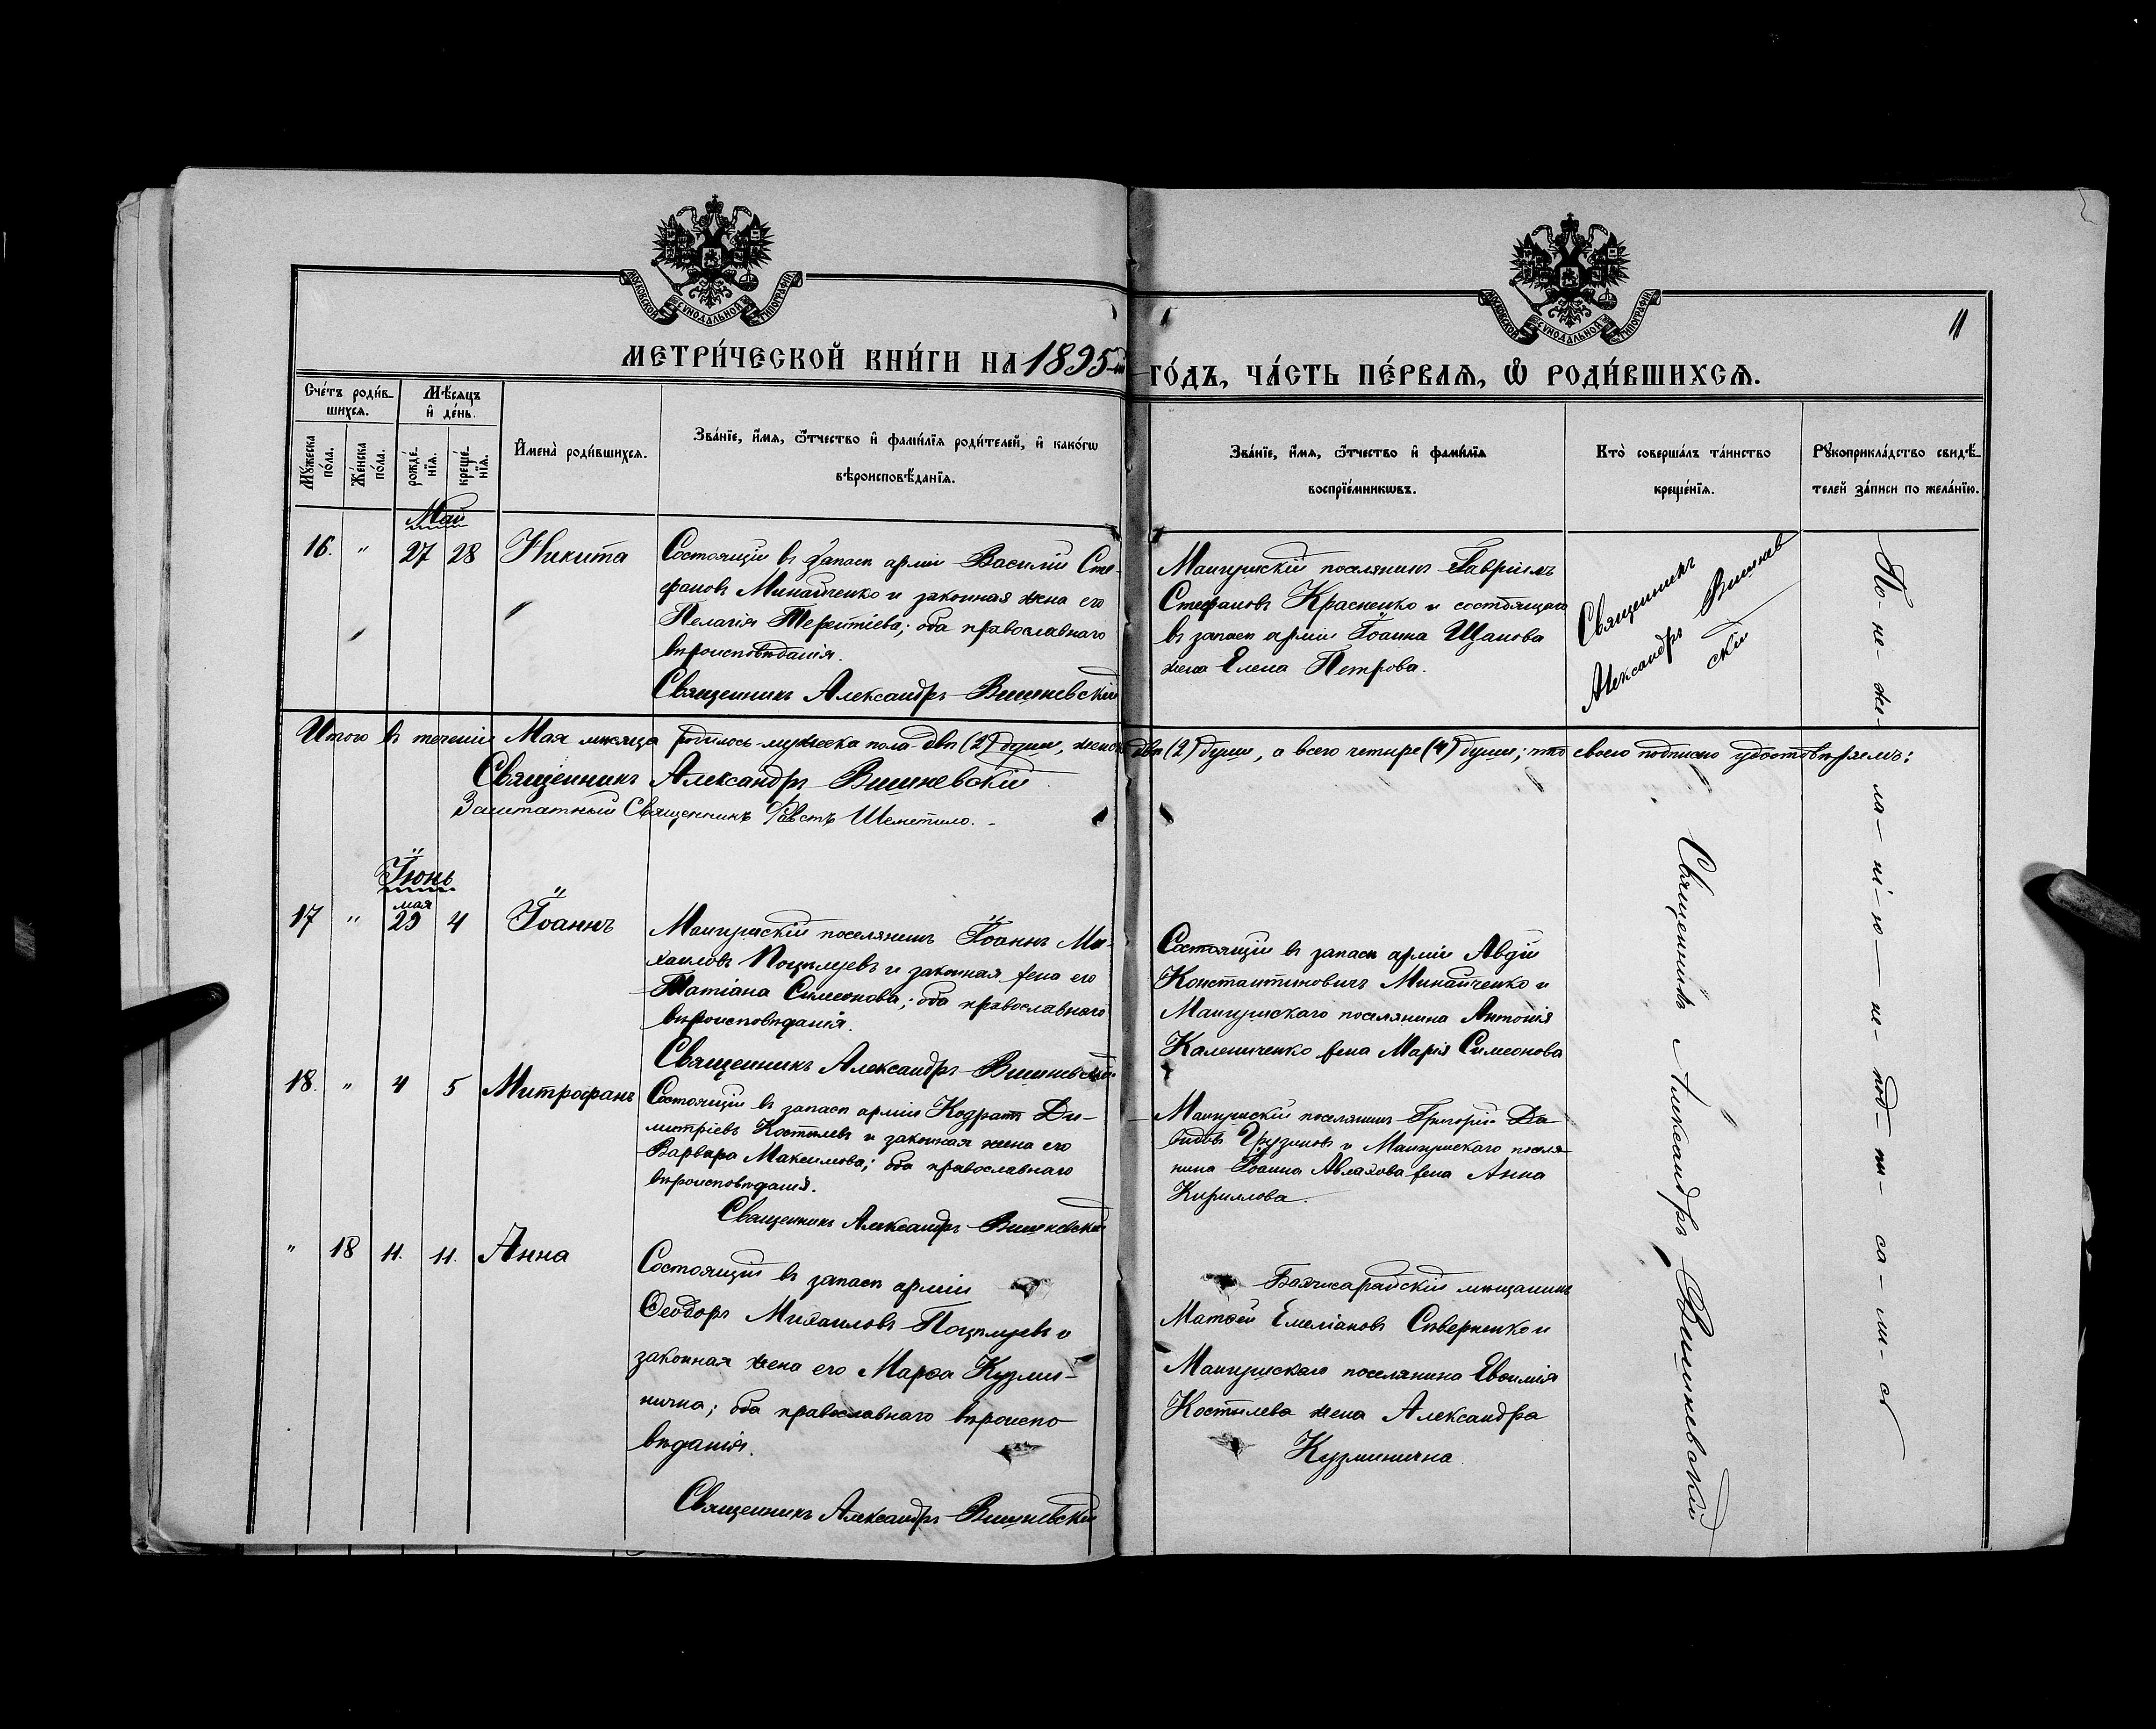 МОСКОВСКОЙ СѴНОДАЛЬНОЙ ТИПОГРАФІИ
МОСКОВСКОЙ СѴНОДАЛЬНОЙ ТИПОГРАФІИ
11
МЕТРИ́ЧЕСКОЙ КНИ́ГИ НА 1895-й
ГО́ДЪ, ЧА́СТЬ ПЕ́РВАѦ, Ѽ РОДИ́ВШИХСѦ.
Сче́тъ роди́в-
шихсѧ.
Мѣ́сѧцъ
и҆ де́нь.
Мꙋ́жеска
по́ла.
Же́нска
по́ла.
рожде́-
нїѧ.
креще́-
нїѧ.
И҆мена̀ роди́вшихсѧ.
Зва́нїе, и҆́мѧ, ѻ҆́тчество и҆ фамі́лїѧ роди́телей, и҆ како́гѡ
вѣроисповѣ́данїѧ.
Зва́нїе, и҆́мѧ, ѻ҆́тчество и҆ фамі́лїѧ
воспрїе́мникѡвъ.
Кто̀ соверша́лъ та́инство
креще́нїѧ.
Рꙋкоприкла́дство свидѣ́-
телей за́писи по жела́нїю.
Май
16. " 27 28 Никита
Состоящій въ запасѣ арміи Василій Сте-
фановъ Минайченко и законная жена его
Пелагія Терентіева; оба православнаго
вѣроисповѣданія.
Священникъ Александръ Вишневскій
Мангушскій поселянинъ Гавріилъ
Стефановъ Красненко и состоящаго
въ запасѣ арміи Іоанна Щапова
жена Елена Петрова.
Священникъ
Александръ Вишнев
скій
По-не-же-ла-ні-ю-не-под-пи-са-ли-сь
Итого въ теченіи Мая мѣсяца родилось мужеска пола двѣ (2) души, женска двѣ (2) души, а всего четыре (4) души; что своею подписью удостовѣряемъ:
Священникъ Александръ Вишневскій
Заштатный Священникъ Фавстъ Шеметило.
Іюнь
мая
17 " 29 4 Іоаннъ
Мангушскій поселянинъ Іоаннъ Ми-
хаиловъ Поцѣлуевъ и законная жена его
Татіана Симеонова; оба православнаго
вѣроисповѣданія.
Священникъ Александръ Вишневскій
Состоящій въ запасѣ арміи Авдій
Константиновичъ Минайченко и
Мангушскаго поселянина Антонія
Калениченко жена Марія Симеонова
18. " 4 5 Митрофанъ
Состоящій въ запасѣ арміи Кодратъ Ди-
митріевъ Костылевъ и законная жена его
Варвара Максимова; оба православнаго
вѣроисповѣданія.
Священникъ Александръ Вишневскій
Мангушскій поселянинъ Григорій Да
видовъ Грузиновъ и Мангушскаго поселя-
нина Іоанна Авлахова жена Анна
Кириллова.
" 18 11. 11. Анна
Состоящій въ запасѣ арміи
Ѳеодоръ Михаиловъ Поцѣлуевъ и
законная жена его Марѳа Кузми-
нична; оба православнаго вѣроиспо-
вѣданія.
Священникъ Александръ Вишневскій
Бахчисарайскій мѣщанинъ
Матѳей Емеліановъ Сѣверненко и
Мангушскаго поселянина Евѳимія
Костылева жена Александра
Кузминична
Священникъ Александръ Вишневскій